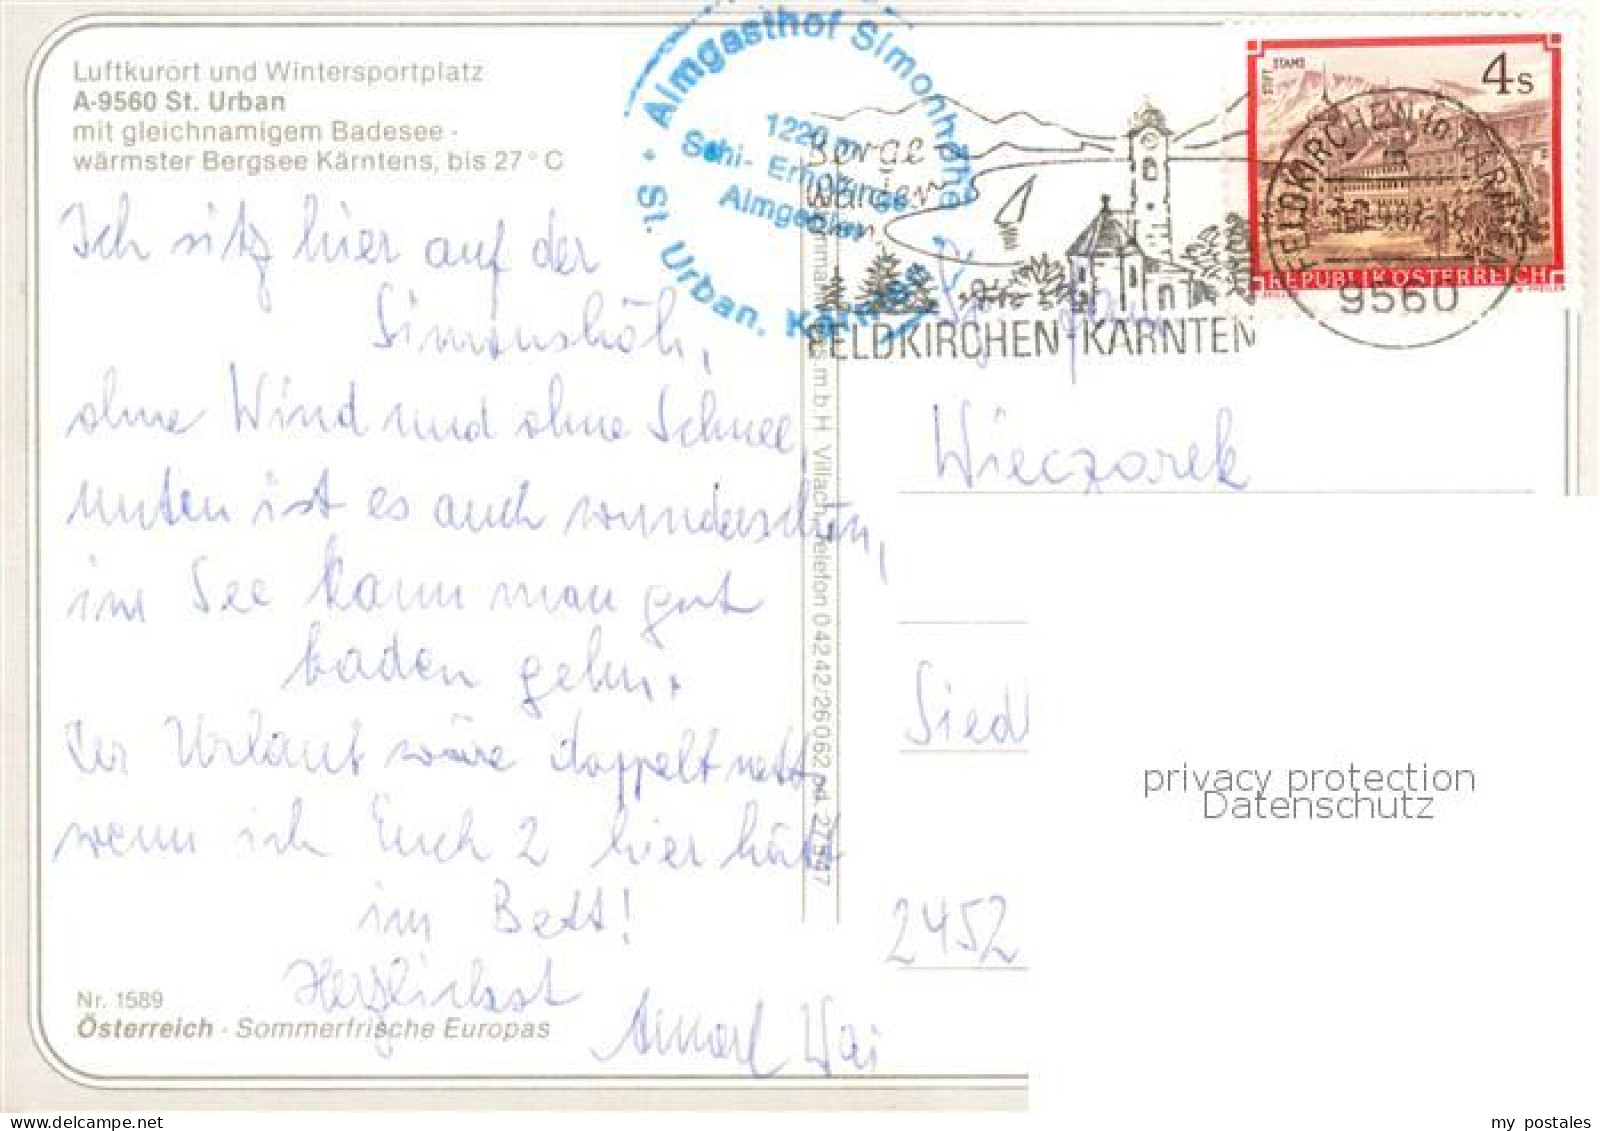 Luftkurort und Wintersportplatz
A-9560 St. Urban
mit gleichnamigem Badesee -
wärmster Bergsee Kärntens, bis 27° C
Almgasthof Simonhöhe
1220 m
Schi- Erholungs
St. Urban, Kärnten
Berge
Wandern
FELDKIRCHEN-KÄRNTEN
STIFT STAMS
4 S
REPUBLIK ÖSTERREICH
FELDKIRCHEN in KÄRNTEN
9560
Ich sitz hier auf der
Simonshöh,
ohne Wind und ohne Schnee
unten ist es auch wunderschön,
im See kann man gut
baden gehn.
Der Urlaub wäre doppelt nett,
wenn ich Euch 2 hier hätt
im Bett!
Herzlichst
Wieczorek
Siedl
2452
Villach, Telefon 04242/26062 pd. 27547
Nr. 1589
Österreich - Sommerfrische Europas
privacy protection
Datenschutz
delcampe.net
my_postales